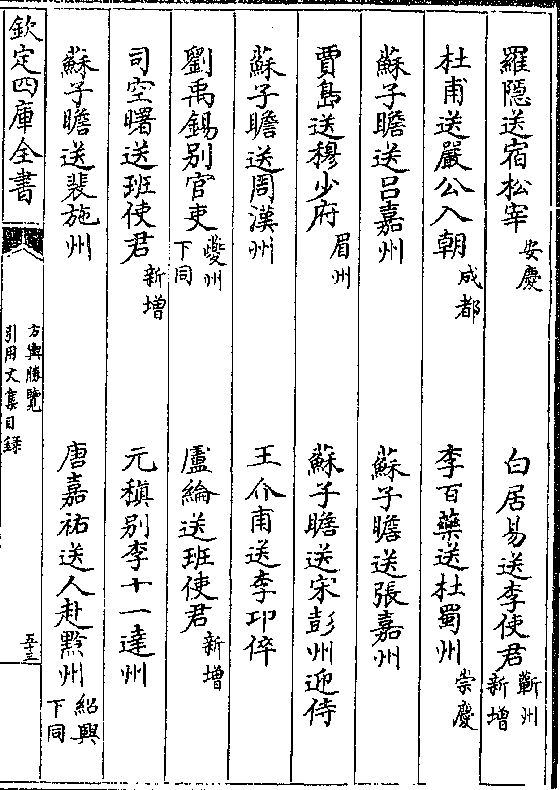 羅隠送宿松宰 安慶 白居易送李使君 蘄州 新增
杜甫送嚴公入朝 成都 李百藥送杜蜀州 崇慶
蘇子瞻送吕嘉州 蘇子瞻送張嘉州
賈島送穆少府 眉州 蘇子瞻送宋彭州迎侍
蘇子瞻送周漢州 王介甫送李卭倅
劉禹錫别官吏 夔州 下同 盧綸送班使君 新增
司空曙送班使君 新增 元稹别李十一達州
蘇子瞻送裴施州 唐嘉祐送人赴黔州 紹興 下同
欽定四庫全書
方輿勝覽
引用文集目録
五十三